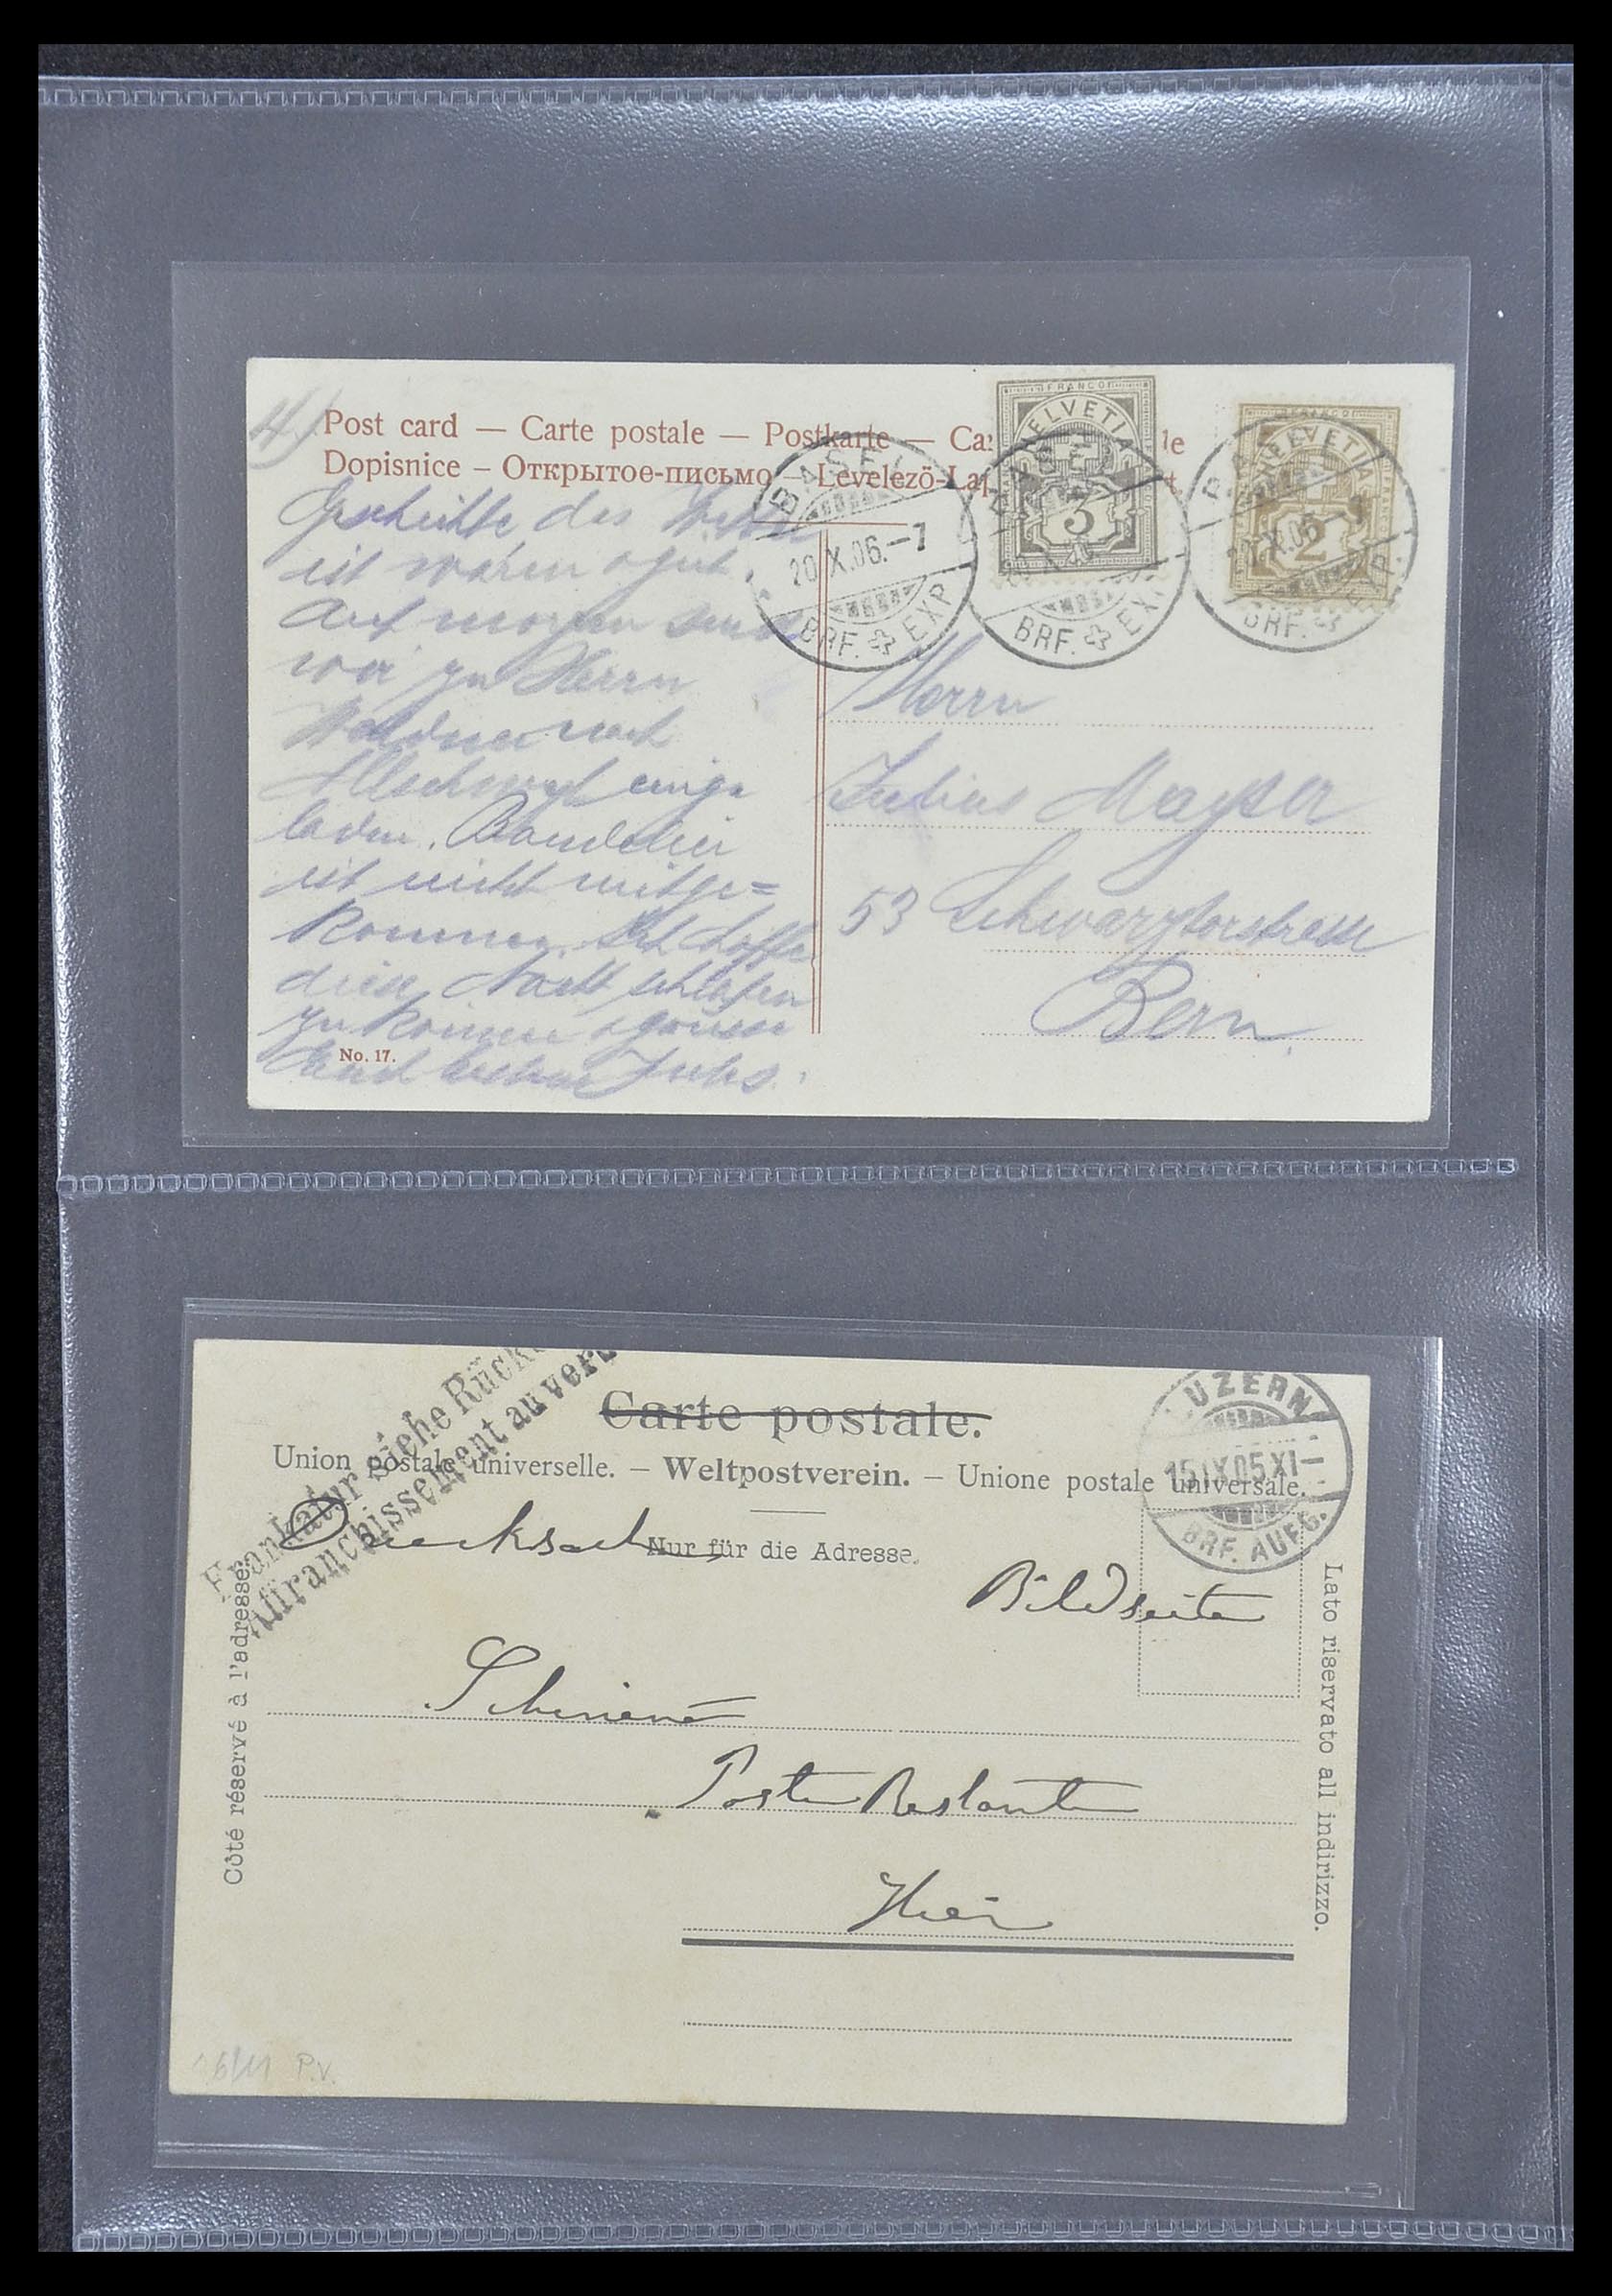 4)
Post card — Carte postale — Postkarte — Ca le
Dopisnice – Открытое-письмо – Levelezö-Lap t
FRANCO
HELVETIA
3
FRANCO
HELVETIA
2
BASEL
20.X.06.–7
BRF. EXP.
BASEL
BRF. EXP.
BRF. EXP.
Geschichte des
ist waren gut.
Auf morgen sind
wir zu Herrn
nach
Allschwyl einge
laden. Bandelier
ist nicht mitge=
kommen. Ich hoffe
diese Nacht schlafen
zu können
No. 17.
Herrn
Julius Mayser
53 Schwarztorstrasse
Bern.
Frankatur siehe Rücks
Affranchissement au vers
Carte postale.
Union postale universelle. – Weltpostverein. – Unione postale universale.
LUZERN
15.IX.05.XI–
BRF. AUFG.
Drucksache
Nur für die Adresse.
Bildseite
Côté réservé à l'adresse.
Lato riservato all indirizzo.
Poste Restante
Hier
P.V.